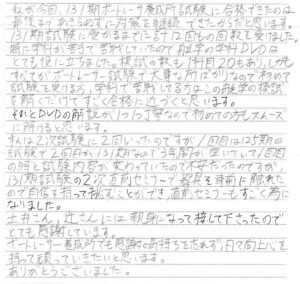 私が今回、131期ボートレーサー養成所試験に合格できたのは
最後まであきらめずに対策を継続できたからだと思います。
131期試験に受かるまでに計12回もの回数を受けました。
特に学科が苦手で苦戦していたので独学の学科DVDは
とても役に立ちました。模試の数も1科目20もあり、しかも
すべてがボートレーサー試験で大事な所ばかりなので初めて
試験を受ける方、学科で苦戦してる方はこの独学の模試
を解くだけですごく合格に近づくと思います。
それとDVDの解説が1つ1つ丁寧なので初めての方もスムーズ
に解けると思います。
私は2次試験に2回いったのですが、1回目は125期の
試験で2回目が131期なので3年間が空いていて1回目
の時と試験内容が変わっていたので不安だったのですが
131期試験の2次直前セミナーで器具を事前に触れた
ので自信を持って挑むことができ、直前セミナーもすごく為に
なりました。
土井さん、辻さんには親身になって接して下さったので
とても感謝しています。
ボートレーサー養成所でも感謝の気持ちを忘れず、日々向上心を
持って頑っていきたいと思います。
ありがとうございました。